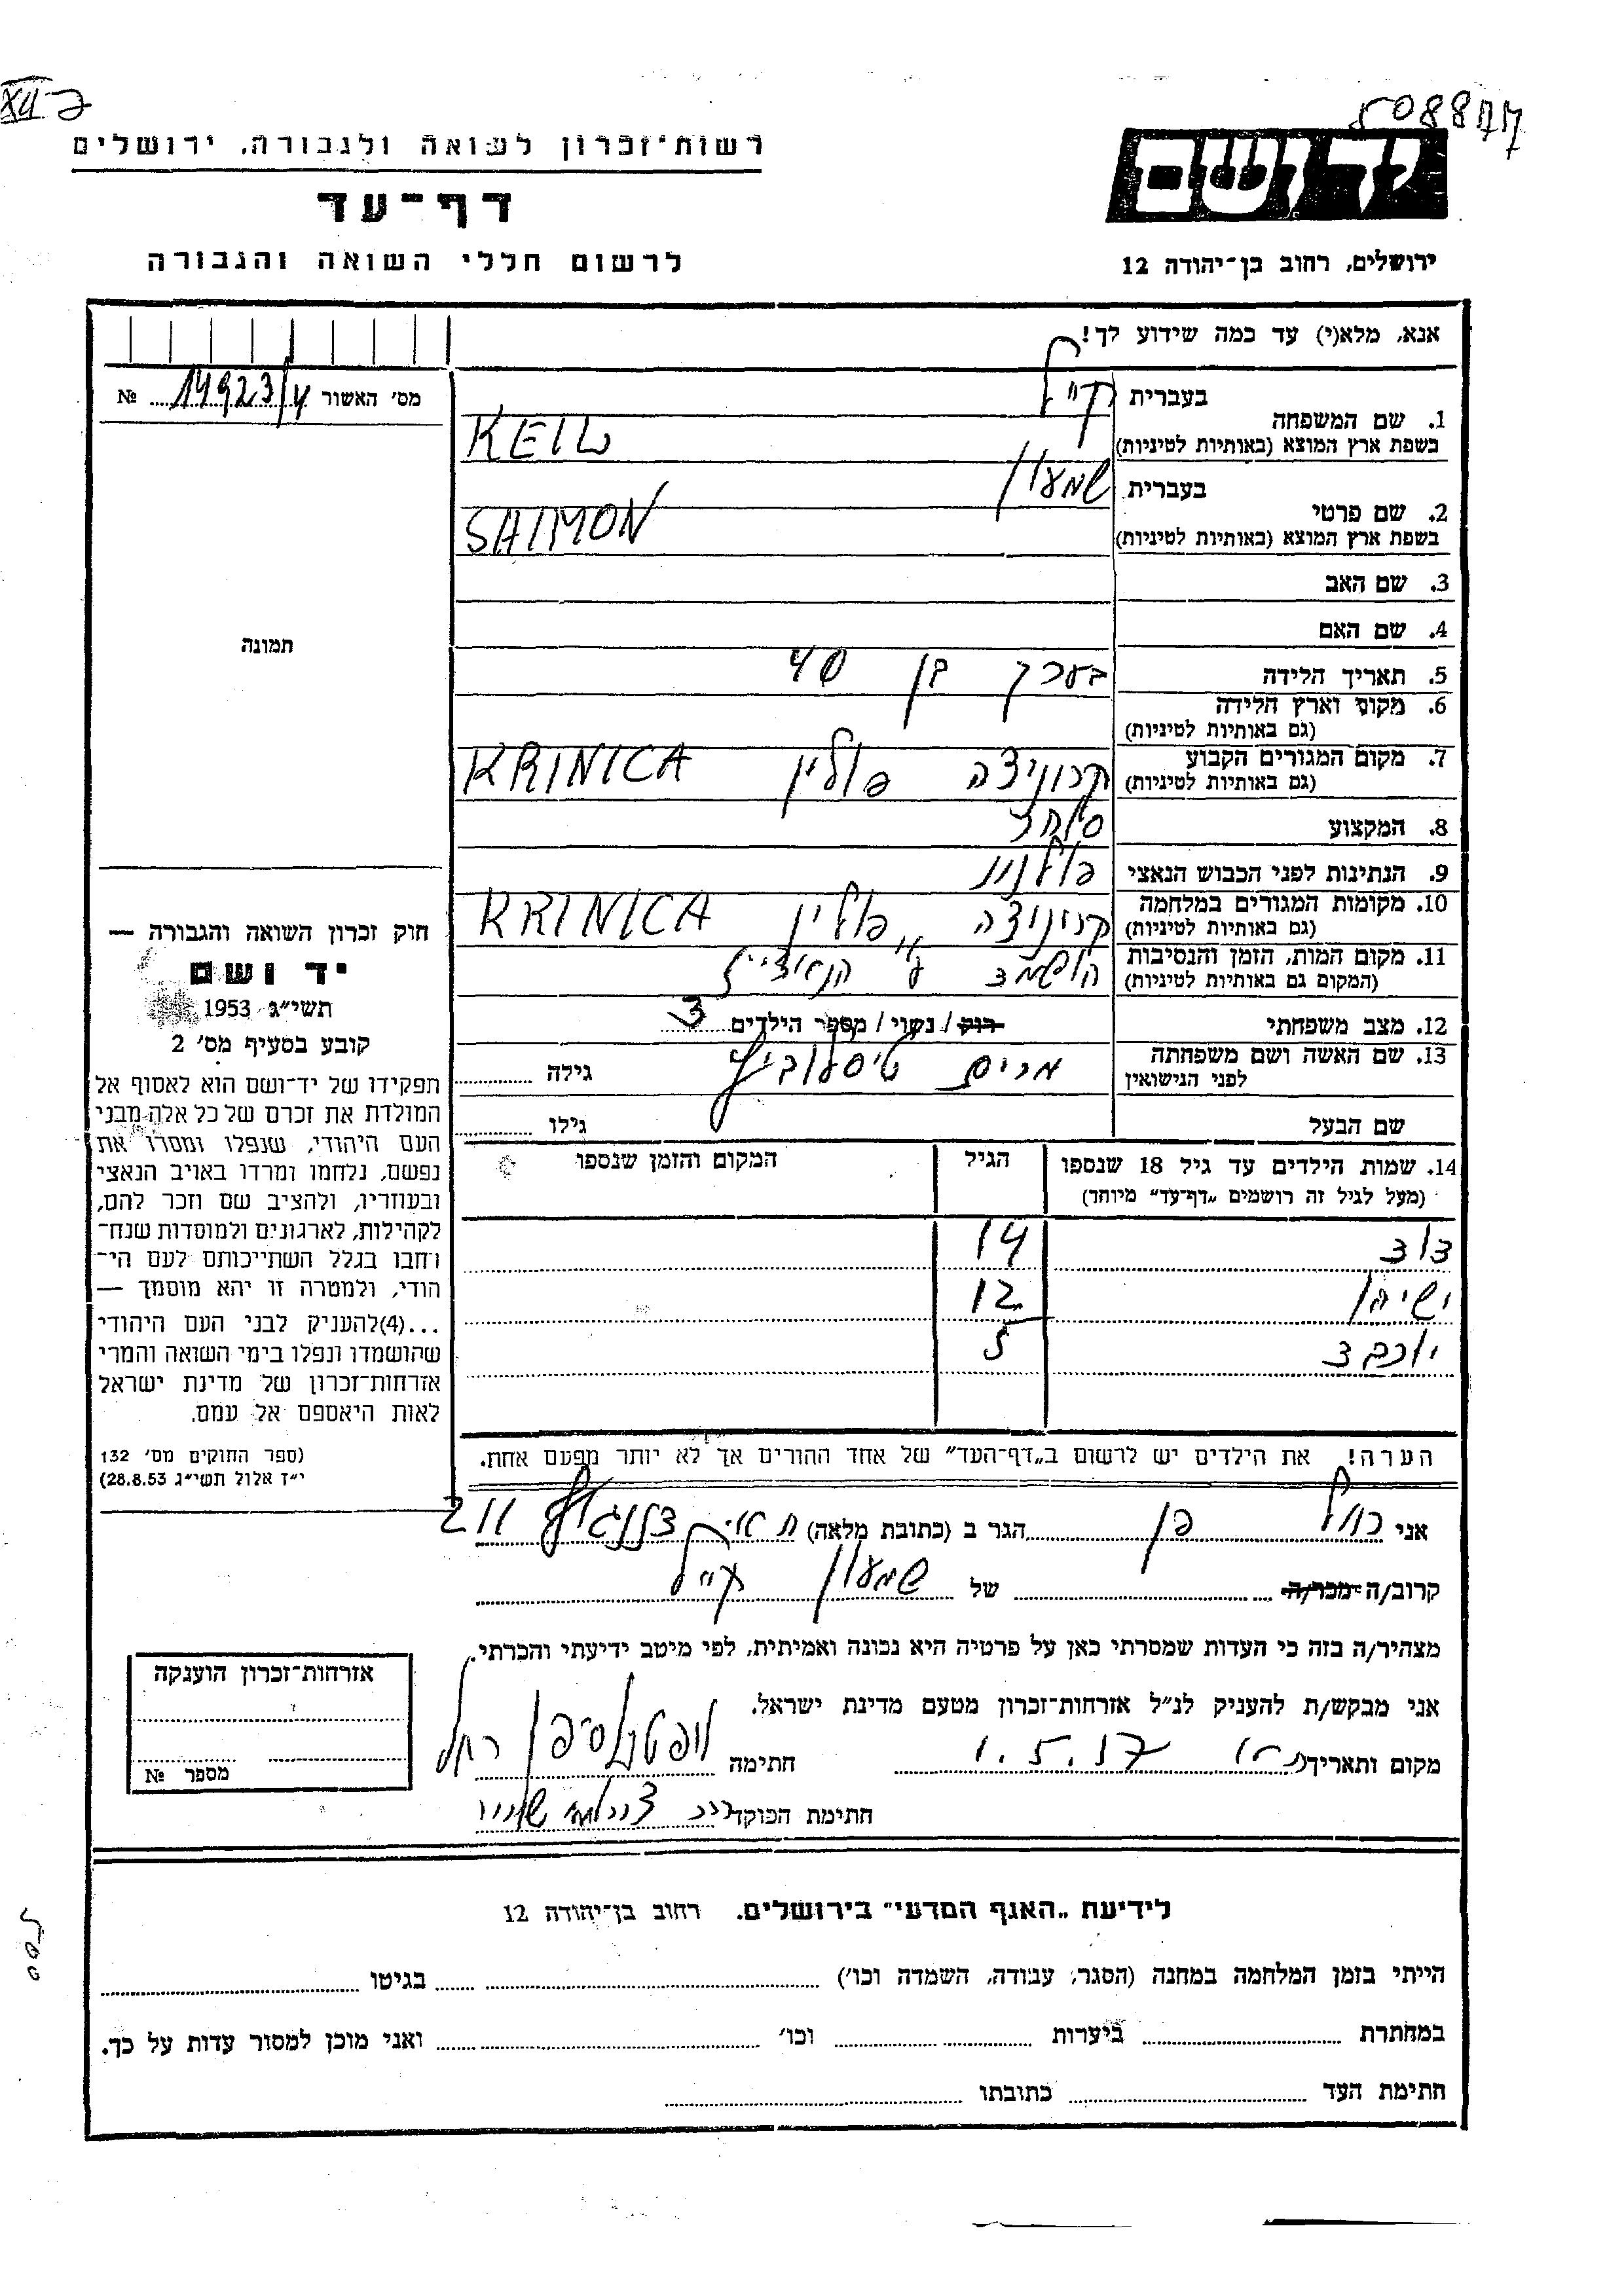 508877
רשות־זכרון לשואה ולגבורה, ירושלים
יד ושם
דף־עד
ירושלים, רחוב בן־יהודה 12
לרשום חללי השואה והגבורה
אנא, מלא(י) עד כמה שידוע לך!
מס׳ האשור 14923/4 №
1. שם המשפחה בעברית קייל
בשפת ארץ המוצא (באותיות לטיניות) KEIL
2. שם פרטי בעברית שמעון
בשפת ארץ המוצא (באותיות לטיניות) SAIMON
3. שם האב
4. שם האם
תמונה
5. תאריך הלידה בערך בן 40
6. מקום וארץ הלידה
(גם באותיות לטיניות)
7. מקום המגורים הקבוע קרוניצה פולין KRINICA
(גם באותיות לטיניות)
8. המקצוע סוחר
9. הנתינות לפני הכבוש הנאצי פולנית
10. מקומות המגורים במלחמה קריניצה פולין KRINICA
(גם באותיות לטיניות)
11. מקום המות, הזמן והנסיבות הושמד ע״י הנאצים
(המקום גם באותיות לטיניות)
12. מצב משפחתי רוק / נשוי / מספר הילדים 3
13. שם האשה ושם משפחתה מרים גילה
לפני הנישואין
שם הבעל גילו
14. שמות הילדים עד גיל 18 שנספו הגיל המקום והזמן שנספו
(מעל לגיל זה רושמים „דף־עד” מיוחד)
דוד 14
ישיהו 12
יוכבד 5
הערה! את הילדים יש לרשום ב„דף־העד” של אחד ההורים אך לא יותר מפעם אחת.
חוק זכרון השואה והגבורה —
יד ושם
תשי״ג 1953
קובע בסעיף מס׳ 2
תפקידו של יד־ושם הוא לאסוף אל
המולדת את זכרם של כל אלה מבני
העם היהודי, שנפלו ומסרו את
נפשם, נלחמו ומרדו באויב הנאצי
ובעוזריו, ולהציב שם וזכר להם,
לקהילות, לארגונים ולמוסדות שנח־
רחבו בגלל השתייכותם לעם הי־
הודי, ולמטרה זו יהא מוסמך —
...(4)להעניק לבני העם היהודי
שהושמדו ונפלו בימי השואה והמרי
אזרחות־זכרון של מדינת ישראל
לאות היאספם אל עמם.
(ספר החוקים מס׳ 132
י״ד אלול תשי״ג 28.8.53)
אני רחל הגר ב (כתובת מלאה) 211
קרוב/ה מכר/ה של שמעון קייל
מצהיר/ה בזה כי העדות שמסרתי כאן על פרטיה היא נכונה ואמיתית, לפי מיטב ידיעתי והכרתי.
אני מבקש/ת להעניק לנ״ל אזרחות־זכרון מטעם מדינת ישראל.
מקום ותאריך 1.5.57 חתימה רחל
חתימת הפוקד
אזרחות־זכרון הוענקה
מספר №
לידיעת „האגף המדעי” בירושלים. רחוב בן־יהודה 12
הייתי בזמן המלחמה במחנה (הסגר, עבודה, השמדה וכו׳) בגיטו
במחתרת ביערות וכו׳ ואני מוכן למסור עדות על כך.
חתימת העד כתובתו